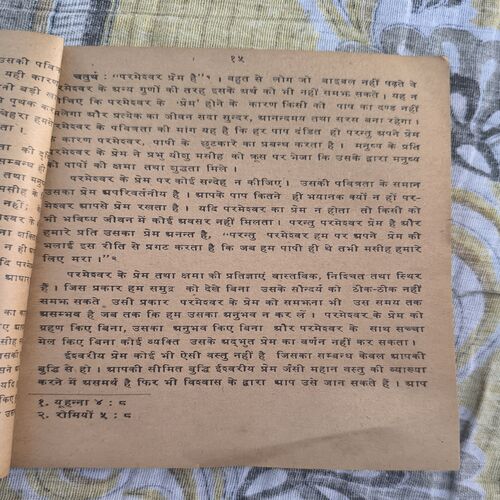 १५
चतुर्थ : "परमेश्वर प्रेम है"१ । बहुत से लोग जो बाइबल नहीं पढ़ते वे
परमेश्वर के अन्य गुणों की तरह इसके अर्थ को भी नहीं समझ सकते । यह न
कि परमेश्वर के 'प्रेम' होने के कारण किसी को पाप का दण्ड नहीं
और प्रत्येक का जीवन सदा सुन्दर, आनन्दमय तथा सरस बना रहेगा ।
परमेश्वर के पवित्रता की मांग यह है कि हर पाप दंडित हो परन्तु अपने प्रेम
के कारण परमेश्वर, पापी के छुटकारे का प्रबन्ध करता है । मनुष्य के प्रति
परमेश्वर के प्रेम ने प्रभु यीशु मसीह को क्रूस पर भेजा कि उसके द्वारा मनुष्य
को पापों की क्षमा तथा शुद्धता मिले ।
परमेश्वर के प्रेम पर कोई सन्देह न कीजिए । उसकी पवित्रता के समान
उसका प्रेम अपरिवर्तनीय है । आपके पाप कितने ही भयानक क्यों न हों पर-
मेश्वर आपसे प्रेम रखता है । यदि परमेश्वर का प्रेम न होता तो किसी को
भी भविष्य जीवन में कोई अवसर नहीं मिलता । परन्तु परमेश्वर प्रेम है और
हमारे प्रति उसका प्रेम अनन्त है, "परन्तु परमेश्वर हम पर अपने प्रेम की
भलाई इस रीति से प्रगट करता है कि जब हम पापी ही थे तभी मसीह हमारे
लिए मरा ।"२
परमेश्वर के प्रेम तथा क्षमा की प्रतिज्ञाएं वास्तविक, निश्चित तथा स्थिर
हैं । जिस प्रकार हम समुद्र को देखे बिना उसके सौन्दर्य को ठीक-ठीक नहीं
समझ सकते उसी प्रकार परमेश्वर के प्रेम को समझना भी उस समय तक
असम्भव है जब तक कि हम उसका अनुभव न कर लें । परमेश्वर के प्रेम को
ग्रहण किए बिना, उसका अनुभव किए बिना और परमेश्वर के साथ सच्चा
मेल किए बिना कोई व्यक्ति उसके अद्भुत प्रेम का वर्णन नहीं कर सकता ।
ईश्वरीय प्रेम कोई भी ऐसी वस्तु नहीं है जिसका सम्बन्ध केवल आपकी
बुद्धि से हो । आपकी सीमित बुद्धि ईश्वरीय प्रेम जैसी महान वस्तु की व्याख्या
करने में असमर्थ है फिर भी विश्वास के द्वारा आप उसे जान सकते हैं । आप
१. यूहन्ना ४ : ८
२. रोमियों ५ : ८